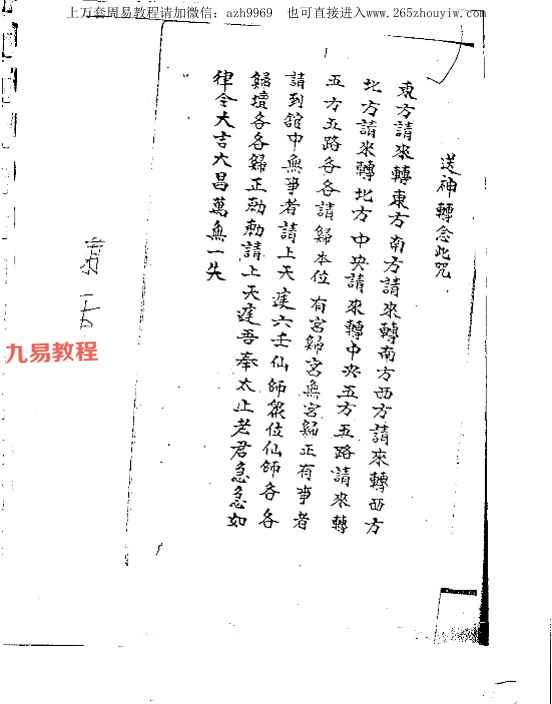 上万套周易教程请加微信：azh9969　也可直接进入www.265zhouyiw.com
送神轉念此咒
東方請來轉東方南方請來轉南方西方請來轉西方
北方請來轉北方中央請來轉中央五方五路請來轉
五方五路各各請歸本位有宮歸宮無宮歸正有事者
請到舘中無事者請上天庭六壬仙師眾位仙師各各
歸壇各各歸正勅勅請上天庭吾奉太上老君急急如
律令大吉大昌萬無一失
九易教程